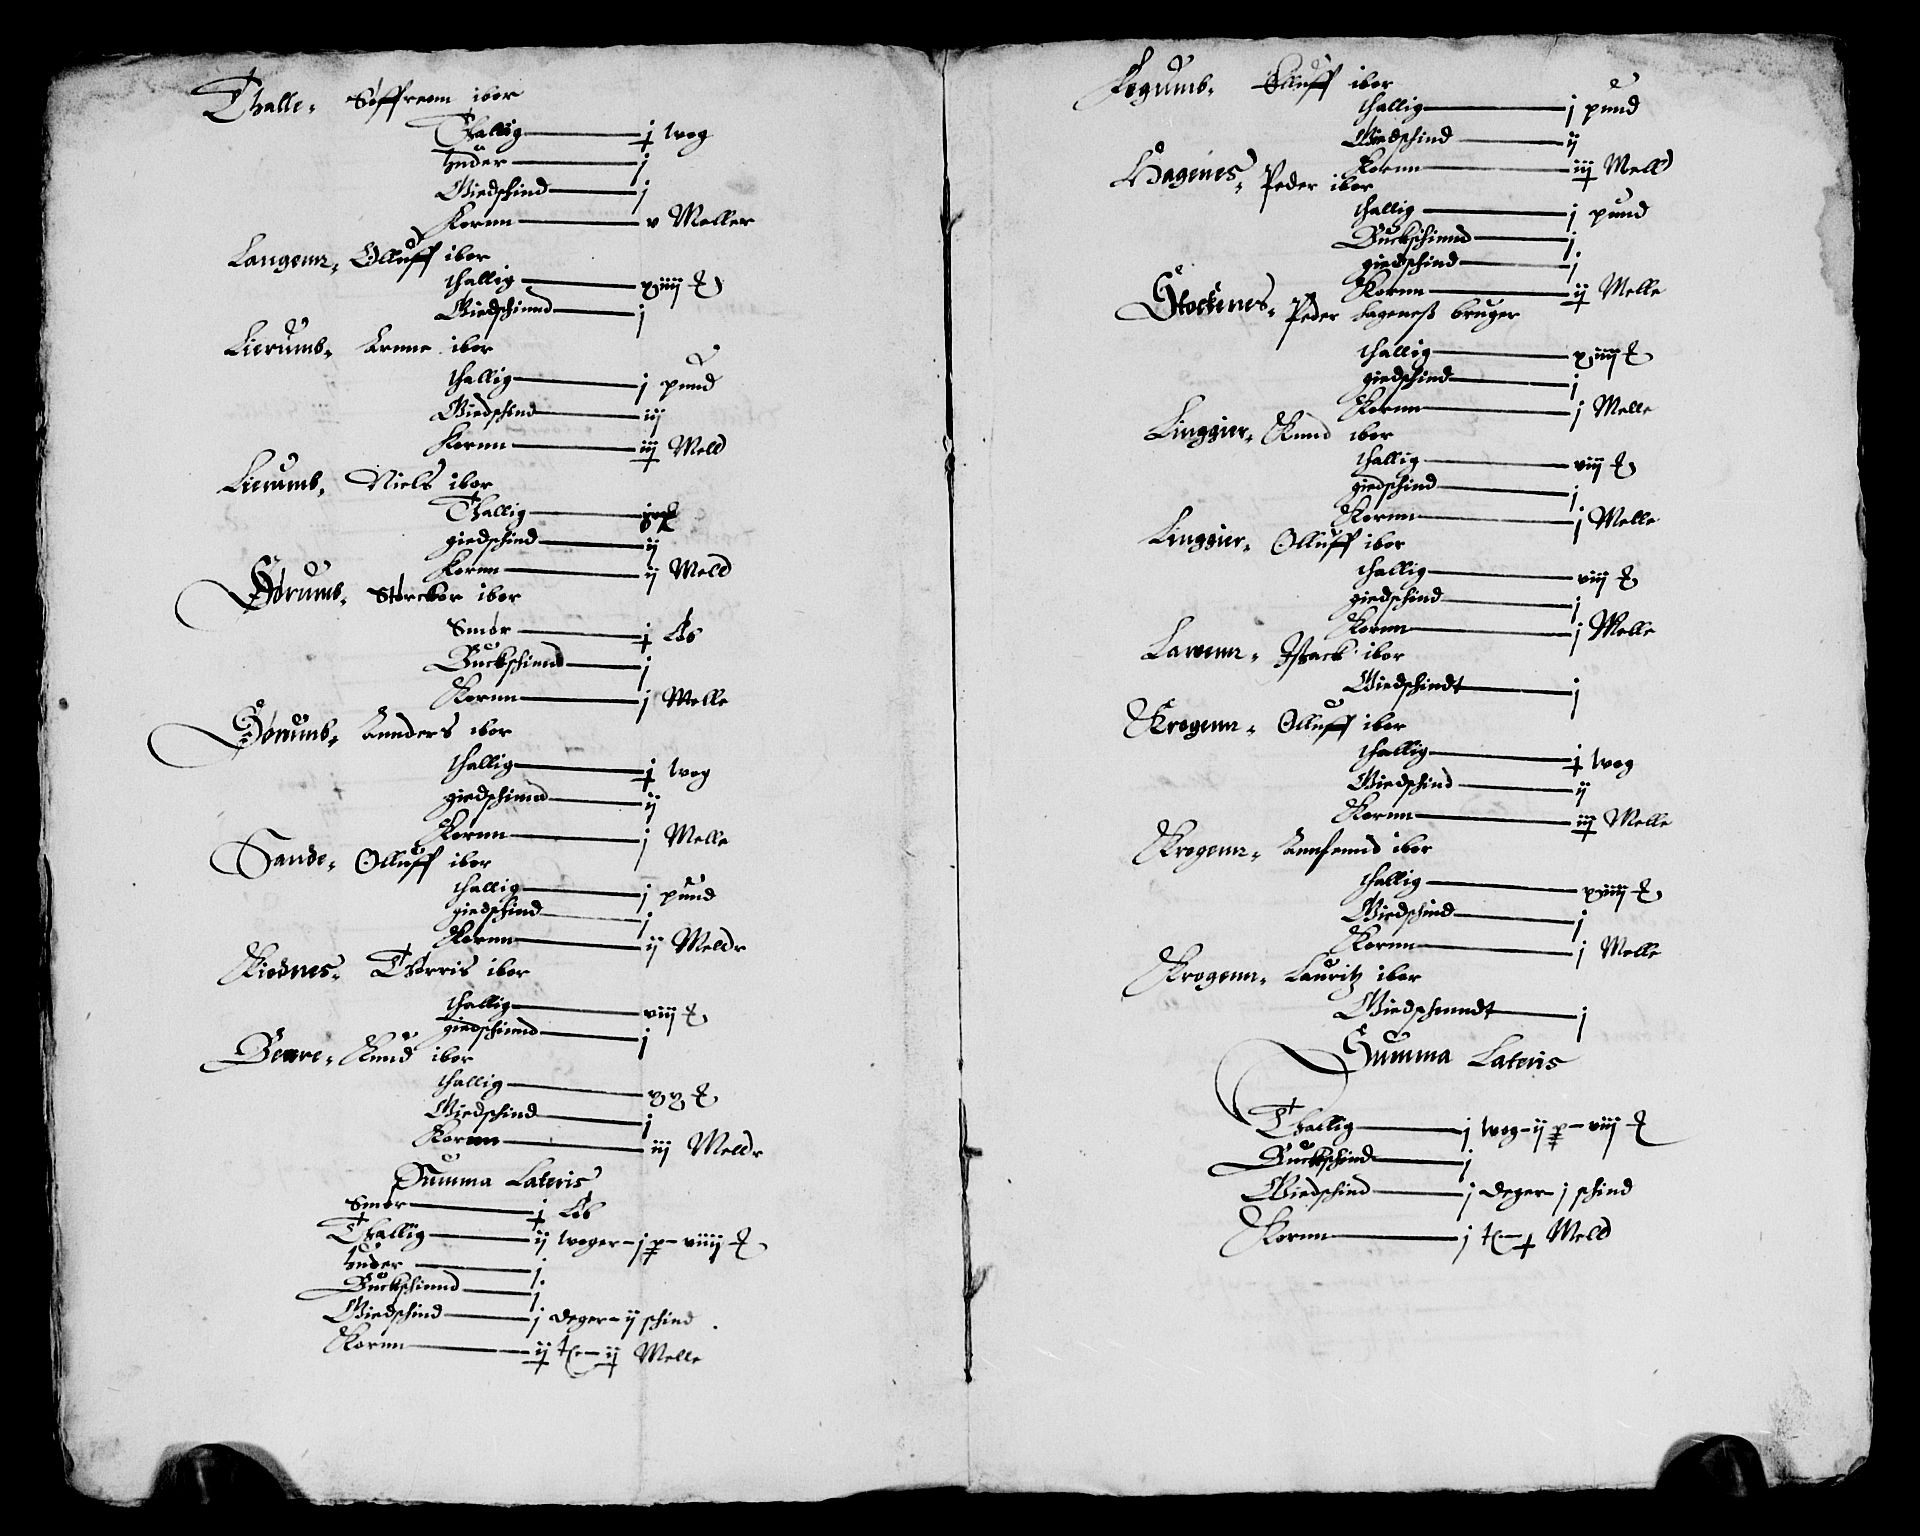 Thalle, Søffrenn ibor
Thallig — j wog
huder — j
Giedschind — j
Kornn — v Meller
Langenn, Olluff ibor
thallig — xviij ℔
Giedschinnd — j
Lierumb, Arnne ibor
thallig — j pund
Giedschind — iij
Kornn — iij Meld
Lierumb, Niels ibor
Thallig
giedschind — ij
Kornn — ij Meld
Størckor ibor
Smør — j Løb
Buckschinnd — j
Kornn — j Melle
Annders ibor
thallig — j wog
giedschinnd — ij
Kornn — j Melle
Sande, Olluff ibor
thallig — j pund
giedschind — j
Kornn — ij Meldr
Kiønes, Thørris ibor
thallig — viij ℔
giedschinnd — j
Berre, Knud ibor
thallig — xx ℔
Giedschind — j
Kornn — iij Meldr
Summa Lateris
Smør — j Løb
Thallig — ij woger – j p – viiij ℔
huder — j
Buckschinnd — j
Giedschind — j deger – ij schind
Kornn — ij tr – ij Melle
Olluff ibor
thallig — j pund
Giedschind — ij
Kornn — iij Melld
Hagenes, Peder ibor
thallig — j pund
Buckschinnd — j
giedschind — j
Kornn — ij Melle
Stockenes, Peder Hagenes bruger
thallig — xiiij ℔
giedschind — j
Kornn — j Melle
Linggier, Knud ibor
thallig — viij ℔
giedschind — j
Kornn — j Melle
Linggier, Olluff ibor
thallig — viij ℔
giedschind — j
Kornn — j Melle
Lawenn, Isack ibor
Giedschindt — j
Krogenn, Olluff ibor
thallig — j wog
Giedschind — ij
Kornn — iij Melle
Krogenn, Annfennd ibor
thallig — xviij ℔
Giedschind — j
Kornn — j Melle
Krogenn, Lauritz ibor
Giedschinndt — j
Summa Lateris
Thallig — j wog – ij p – viij ℔
Buckschind — j
Giedschind — j deger – j schind
Kornn — j tr – j Meld